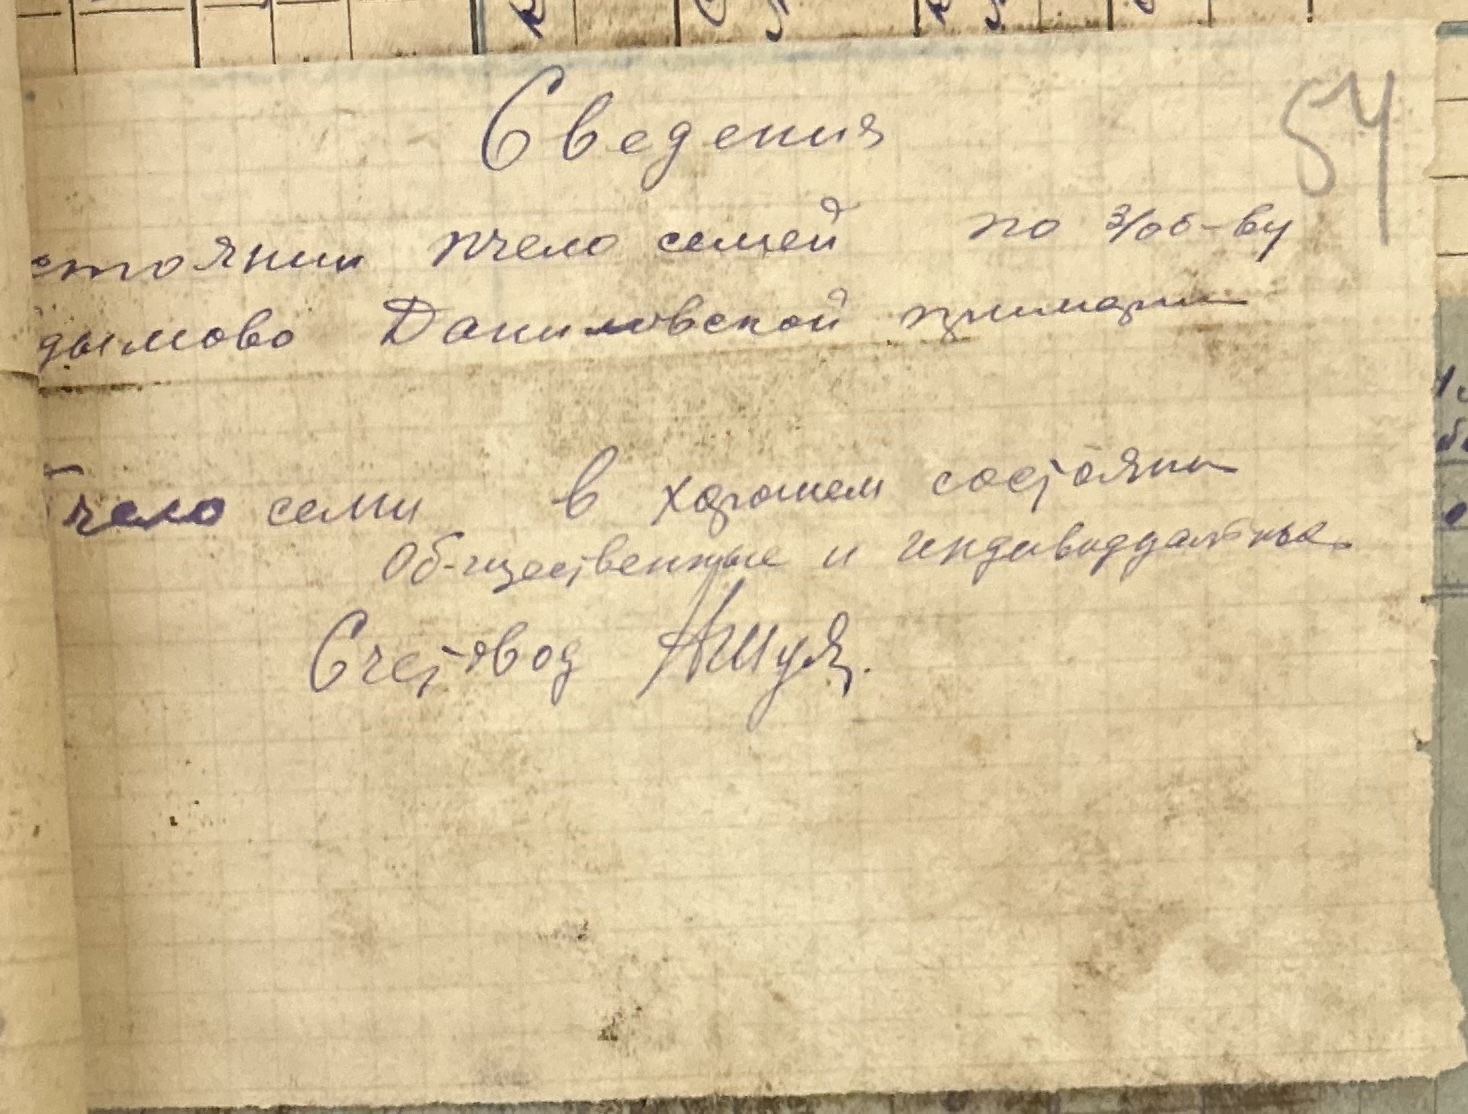 54
Сведения
стоянии пчело семей по з/об-ву
дымово Даниловской примарии
Пчело семи в хорошем состоянии
Об-щественные и индивиддуальные
Счетовод